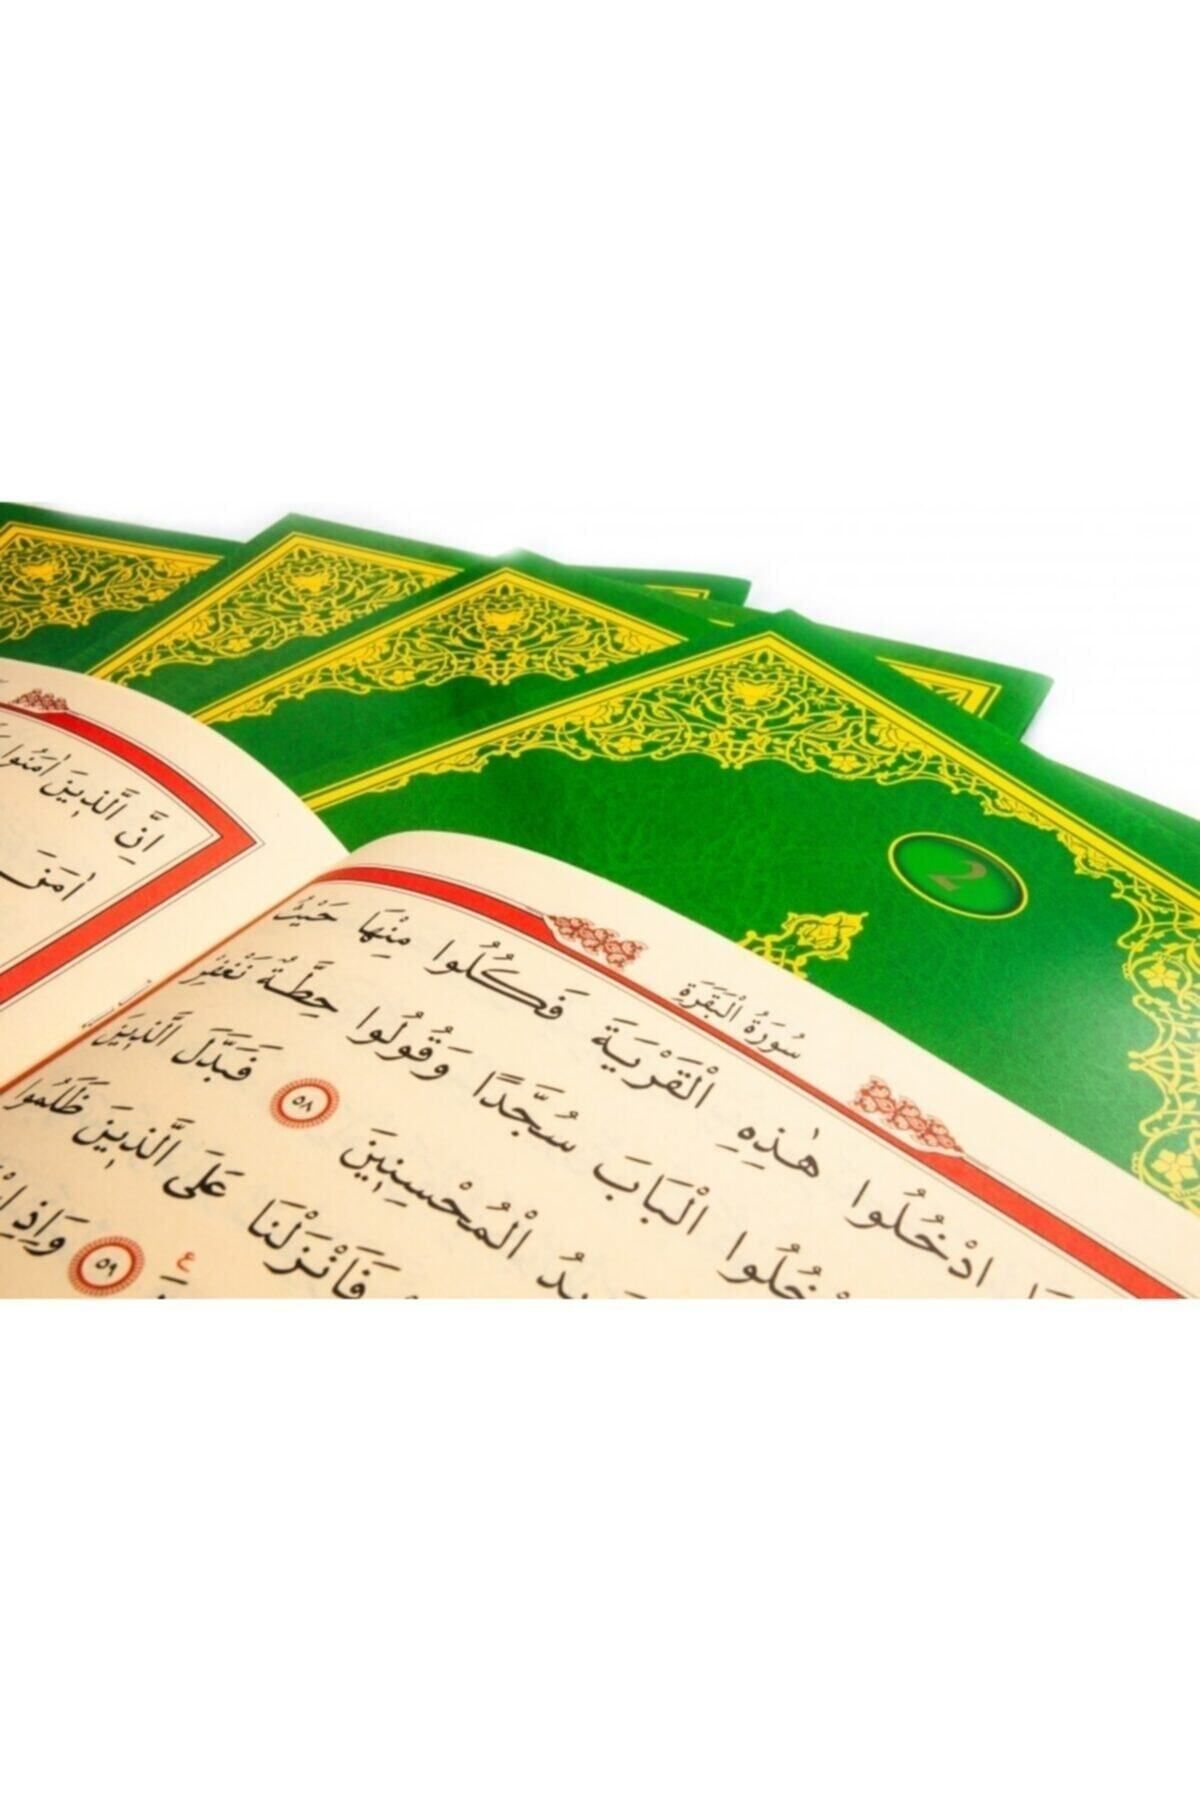 سُورَةُ الْبَقَرَةِ
ادْخُلُوا هٰذِهِ الْقَرْيَةَ فَكُلُوا مِنْهَا حَيْثُ
الْبَابَ سُجَّدًا وَقُولُوا حِطَّةٌ نَغْفِرْ
الْمُحْسِنِينَ ٥٨ فَبَدَّلَ الَّذِينَ
فَاَنْزَلْنَا عَلَى الَّذِينَ ظَلَمُوا
٥٩ وَاِذِ
ع
اِنَّ الَّذِينَ اٰمَنُوا
اٰمَنَ
2